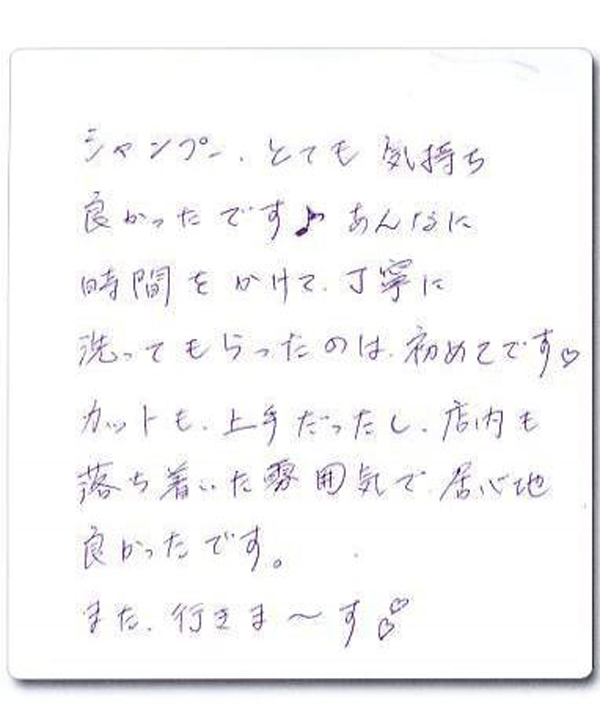 シャンプー、とても気持ち
良かったです♪あんなに
時間をかけて、丁寧に
洗ってもらったのは、初めてです♡
カットも、上手だったし、店内も
落ち着いた雰囲気で、居心地
良かったです。
また、行きま〜す♡♡